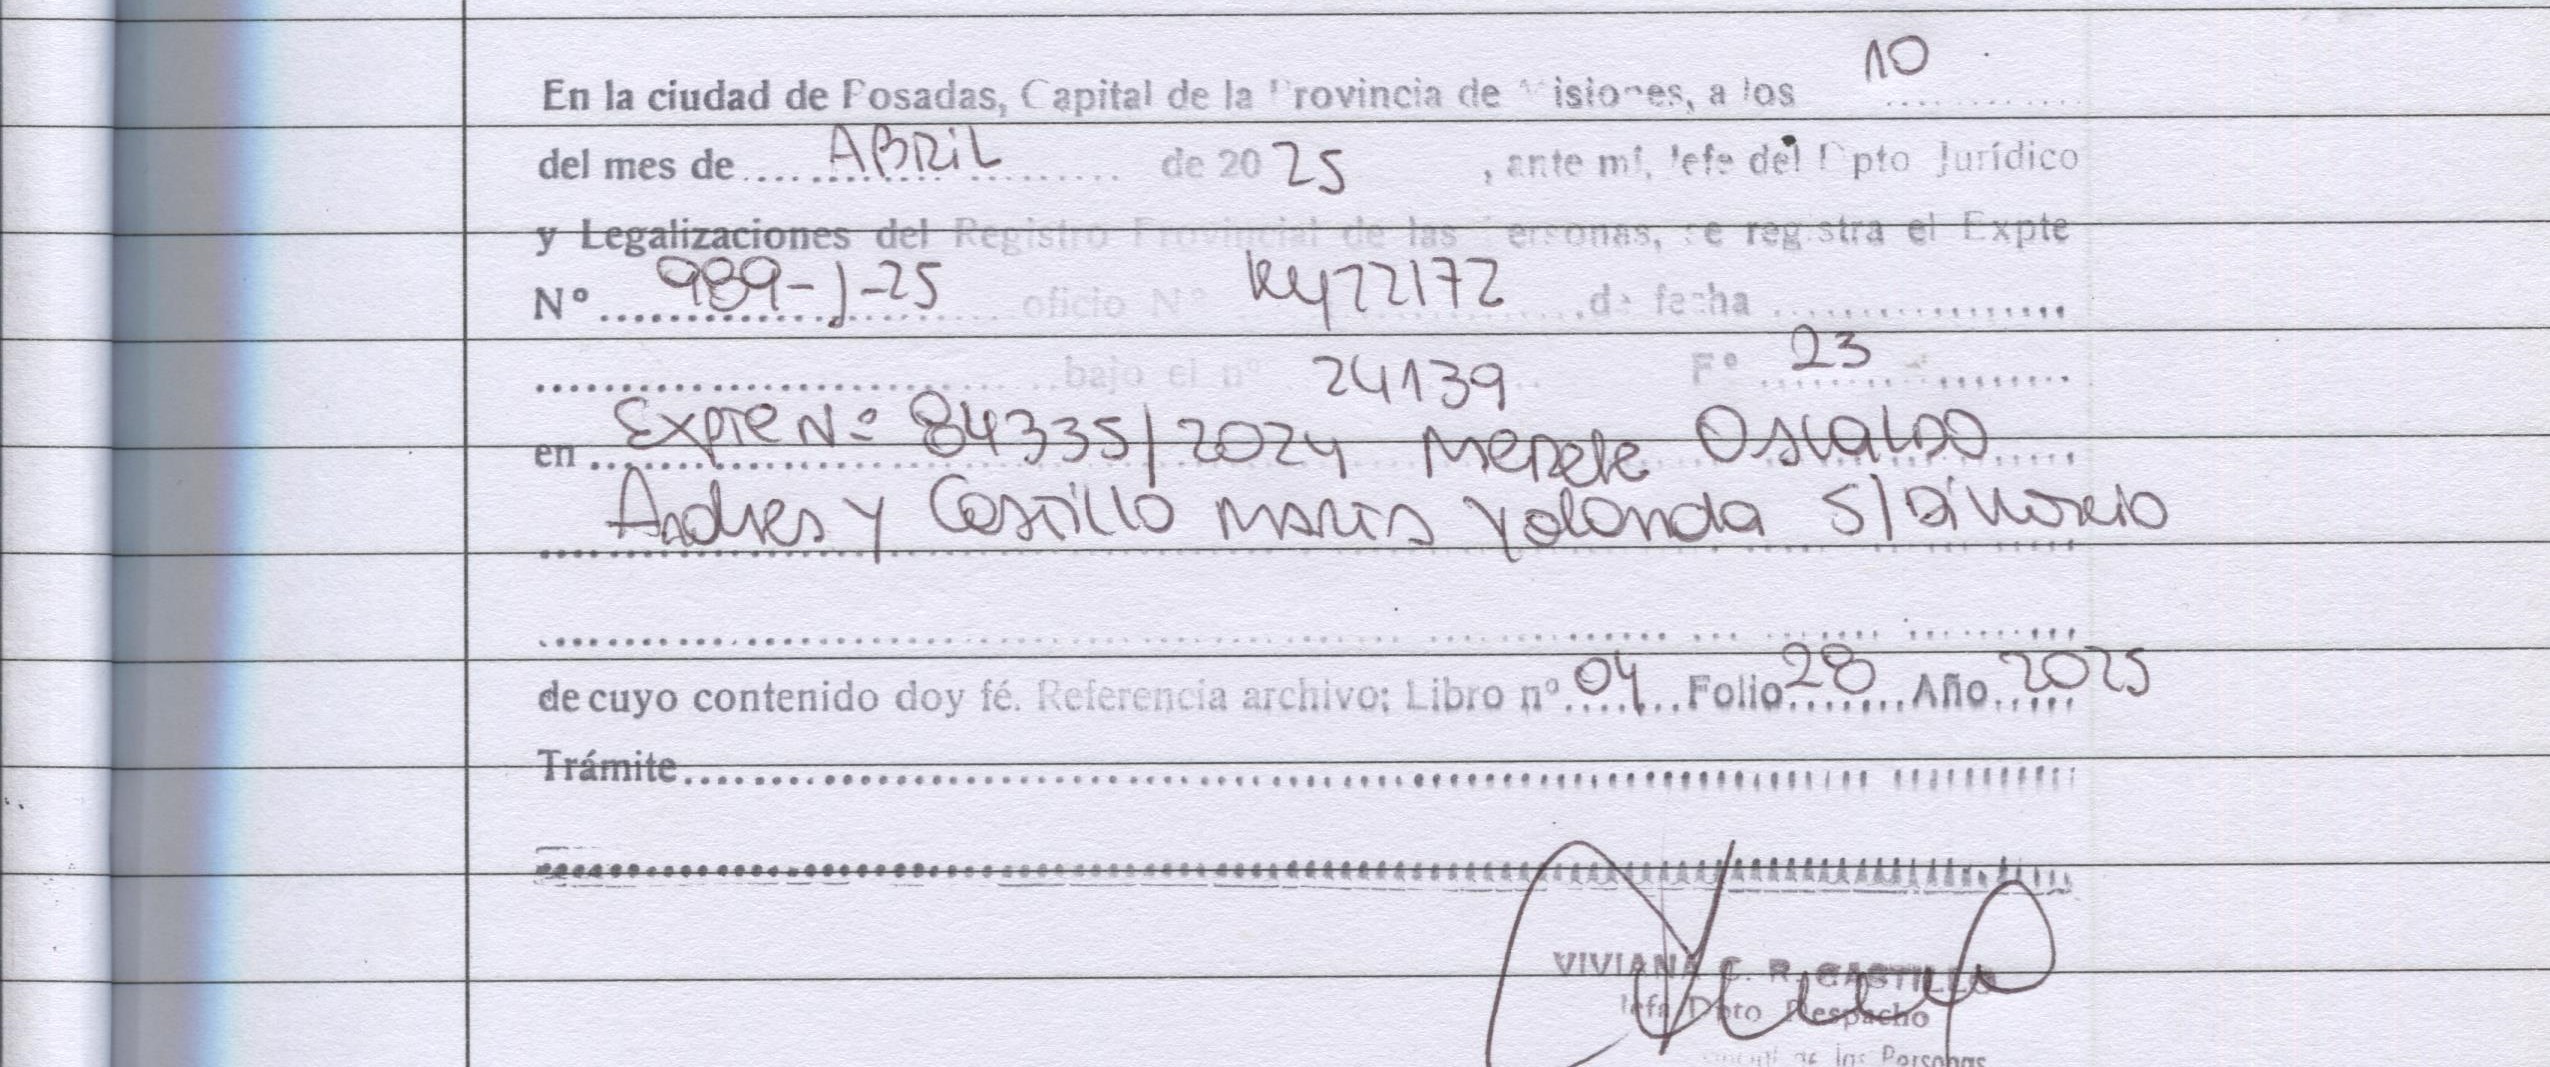 En la ciudad de Posadas, Capital de la Provincia de Misiones, a los 10
del mes de ABRIL de 20 25, ante mi, Jefe del Dpto Jurídico
y Legalizaciones del Registro Provincial de las Personas, se registra el Expte
Nº 989-J-25 oficio Nº 22172, de fecha
bajo el nº 24139 Fº 23
en Expte Nº 84335/2024 Oscaldo
Andres y Castillo Maria Yolanda S/Divorcio
de cuyo contenido doy fé. Referencia archivo; Libro nº 04 Folio 28 Año 2025
Trámite
VIVIANA C. R. CASTILLO
Jefe Dpto Despacho
de las Personas